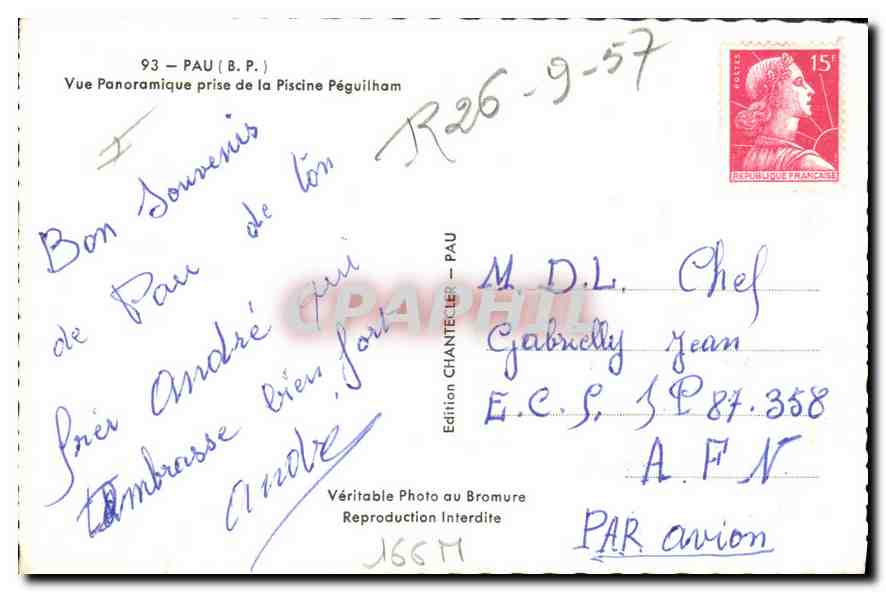 93 – PAU (B. P.)
Vue Panoramique prise de la Piscine Péguilham
R 26-9-57
I
POSTES
15F
REPUBLIQUE FRANÇAISE
Bon Souvenir
de Pau de ton
frèr André qui
t'embrasse bien fort
André
Edition CHANTECLER — PAU
CPAPHIL
M. D. L. Chef
Gabrielly Jean
E. C. S. S P 87.358
A F N
PAR avion
Véritable Photo au Bromure
Reproduction Interdite
166 M